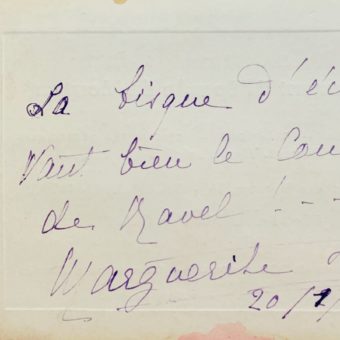 La bisque d'éc
Vaut bien le Con
de Ravel ! - - -
Marguerite
20/1/